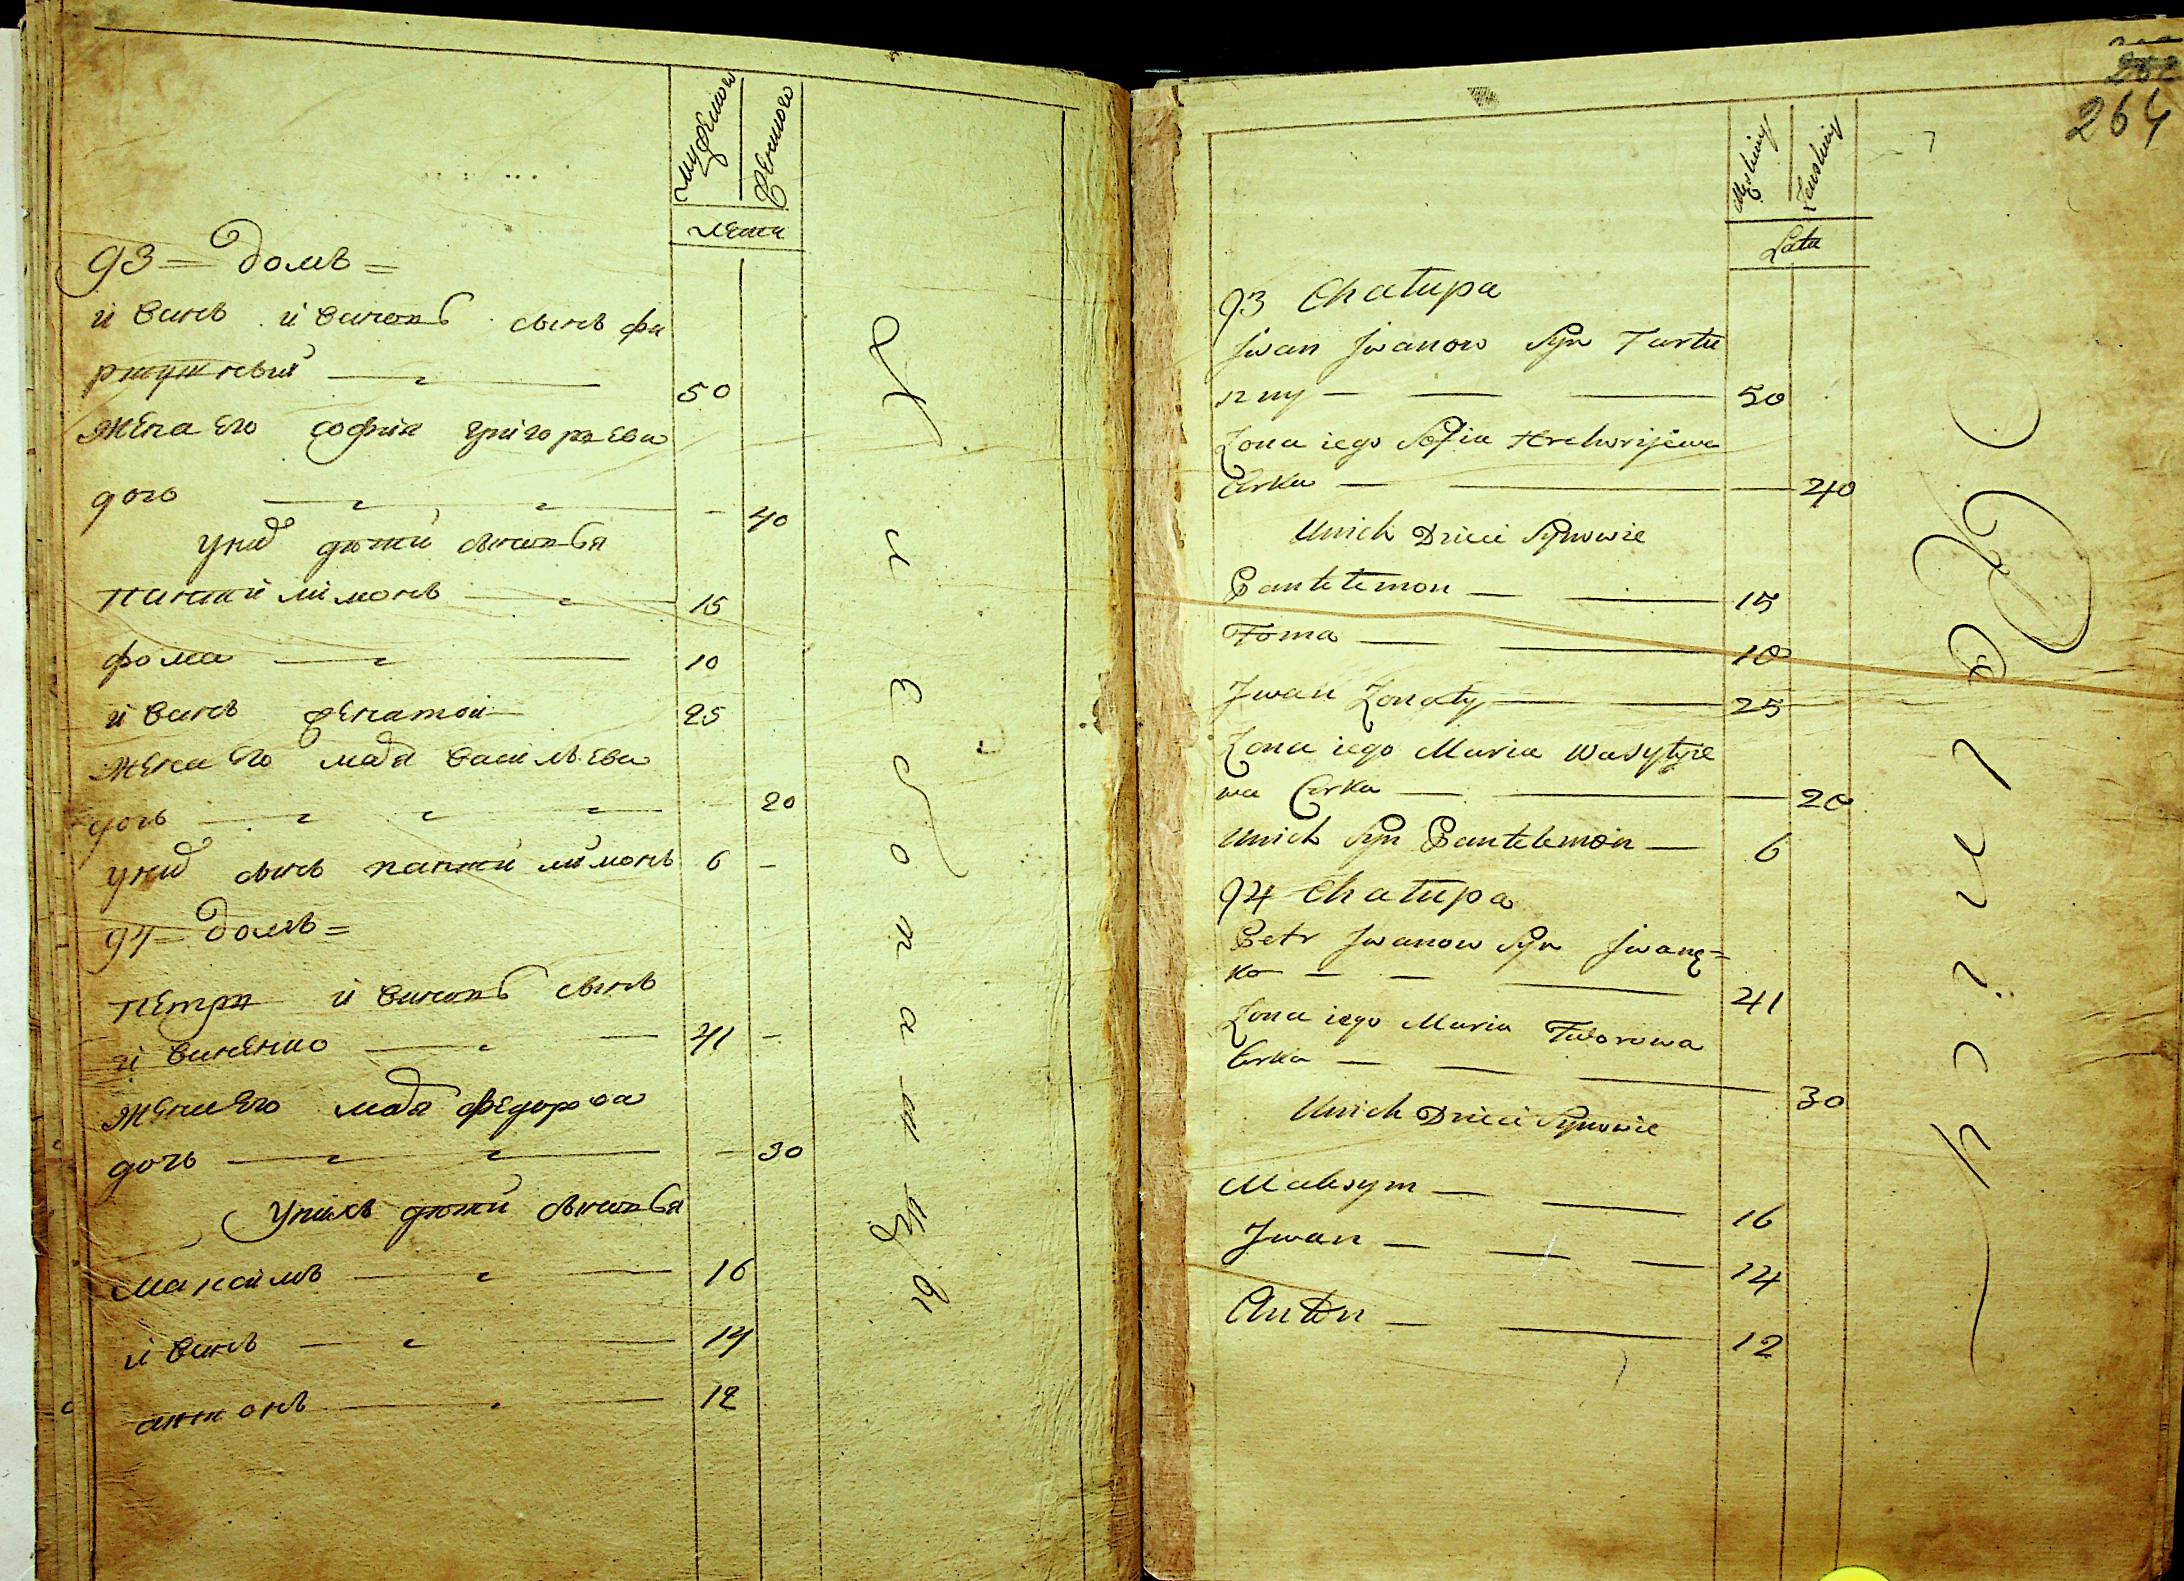 мужеского
женского
лета
93 = домъ =
иванъ ивановъ сынъ фа
ртушный
50
жена его софия григорьева
дочь
40
у них дети сыновья
пантилимонъ 15
фома 10
иванъ женатой 25
жена его марья васильева
дочь 20
у них сынъ пантилимонъ 6
94 = домъ =
петръ ивановъ сынъ
иваненко 41
жена его марья федорова
дочь 30
у нихъ дети сыновья
максимъ 16
иванъ 14
антонъ 12
264
Męskiey
Żenskiey
Lata
93 Chałupa
Jwan Jwanow Syn Fartu
szny 50
Żona iego Sofia Hrehorijewa
Corka 40
Unich Dzieci Synowie
Pantelemon 15
Foma 10
Jwan Żonaty 25
Żona iego Maria Wasylyie
wa Corka 20
Unich Syn Pantelemon 6
94 Chałupa
Petr Jwanow Syn Jwanę=
ko 41
Żona iego Maria Fedorowa
Corka 30
Unich Dzieci Synowie
Maksym 16
Jwan 14
Anton 12